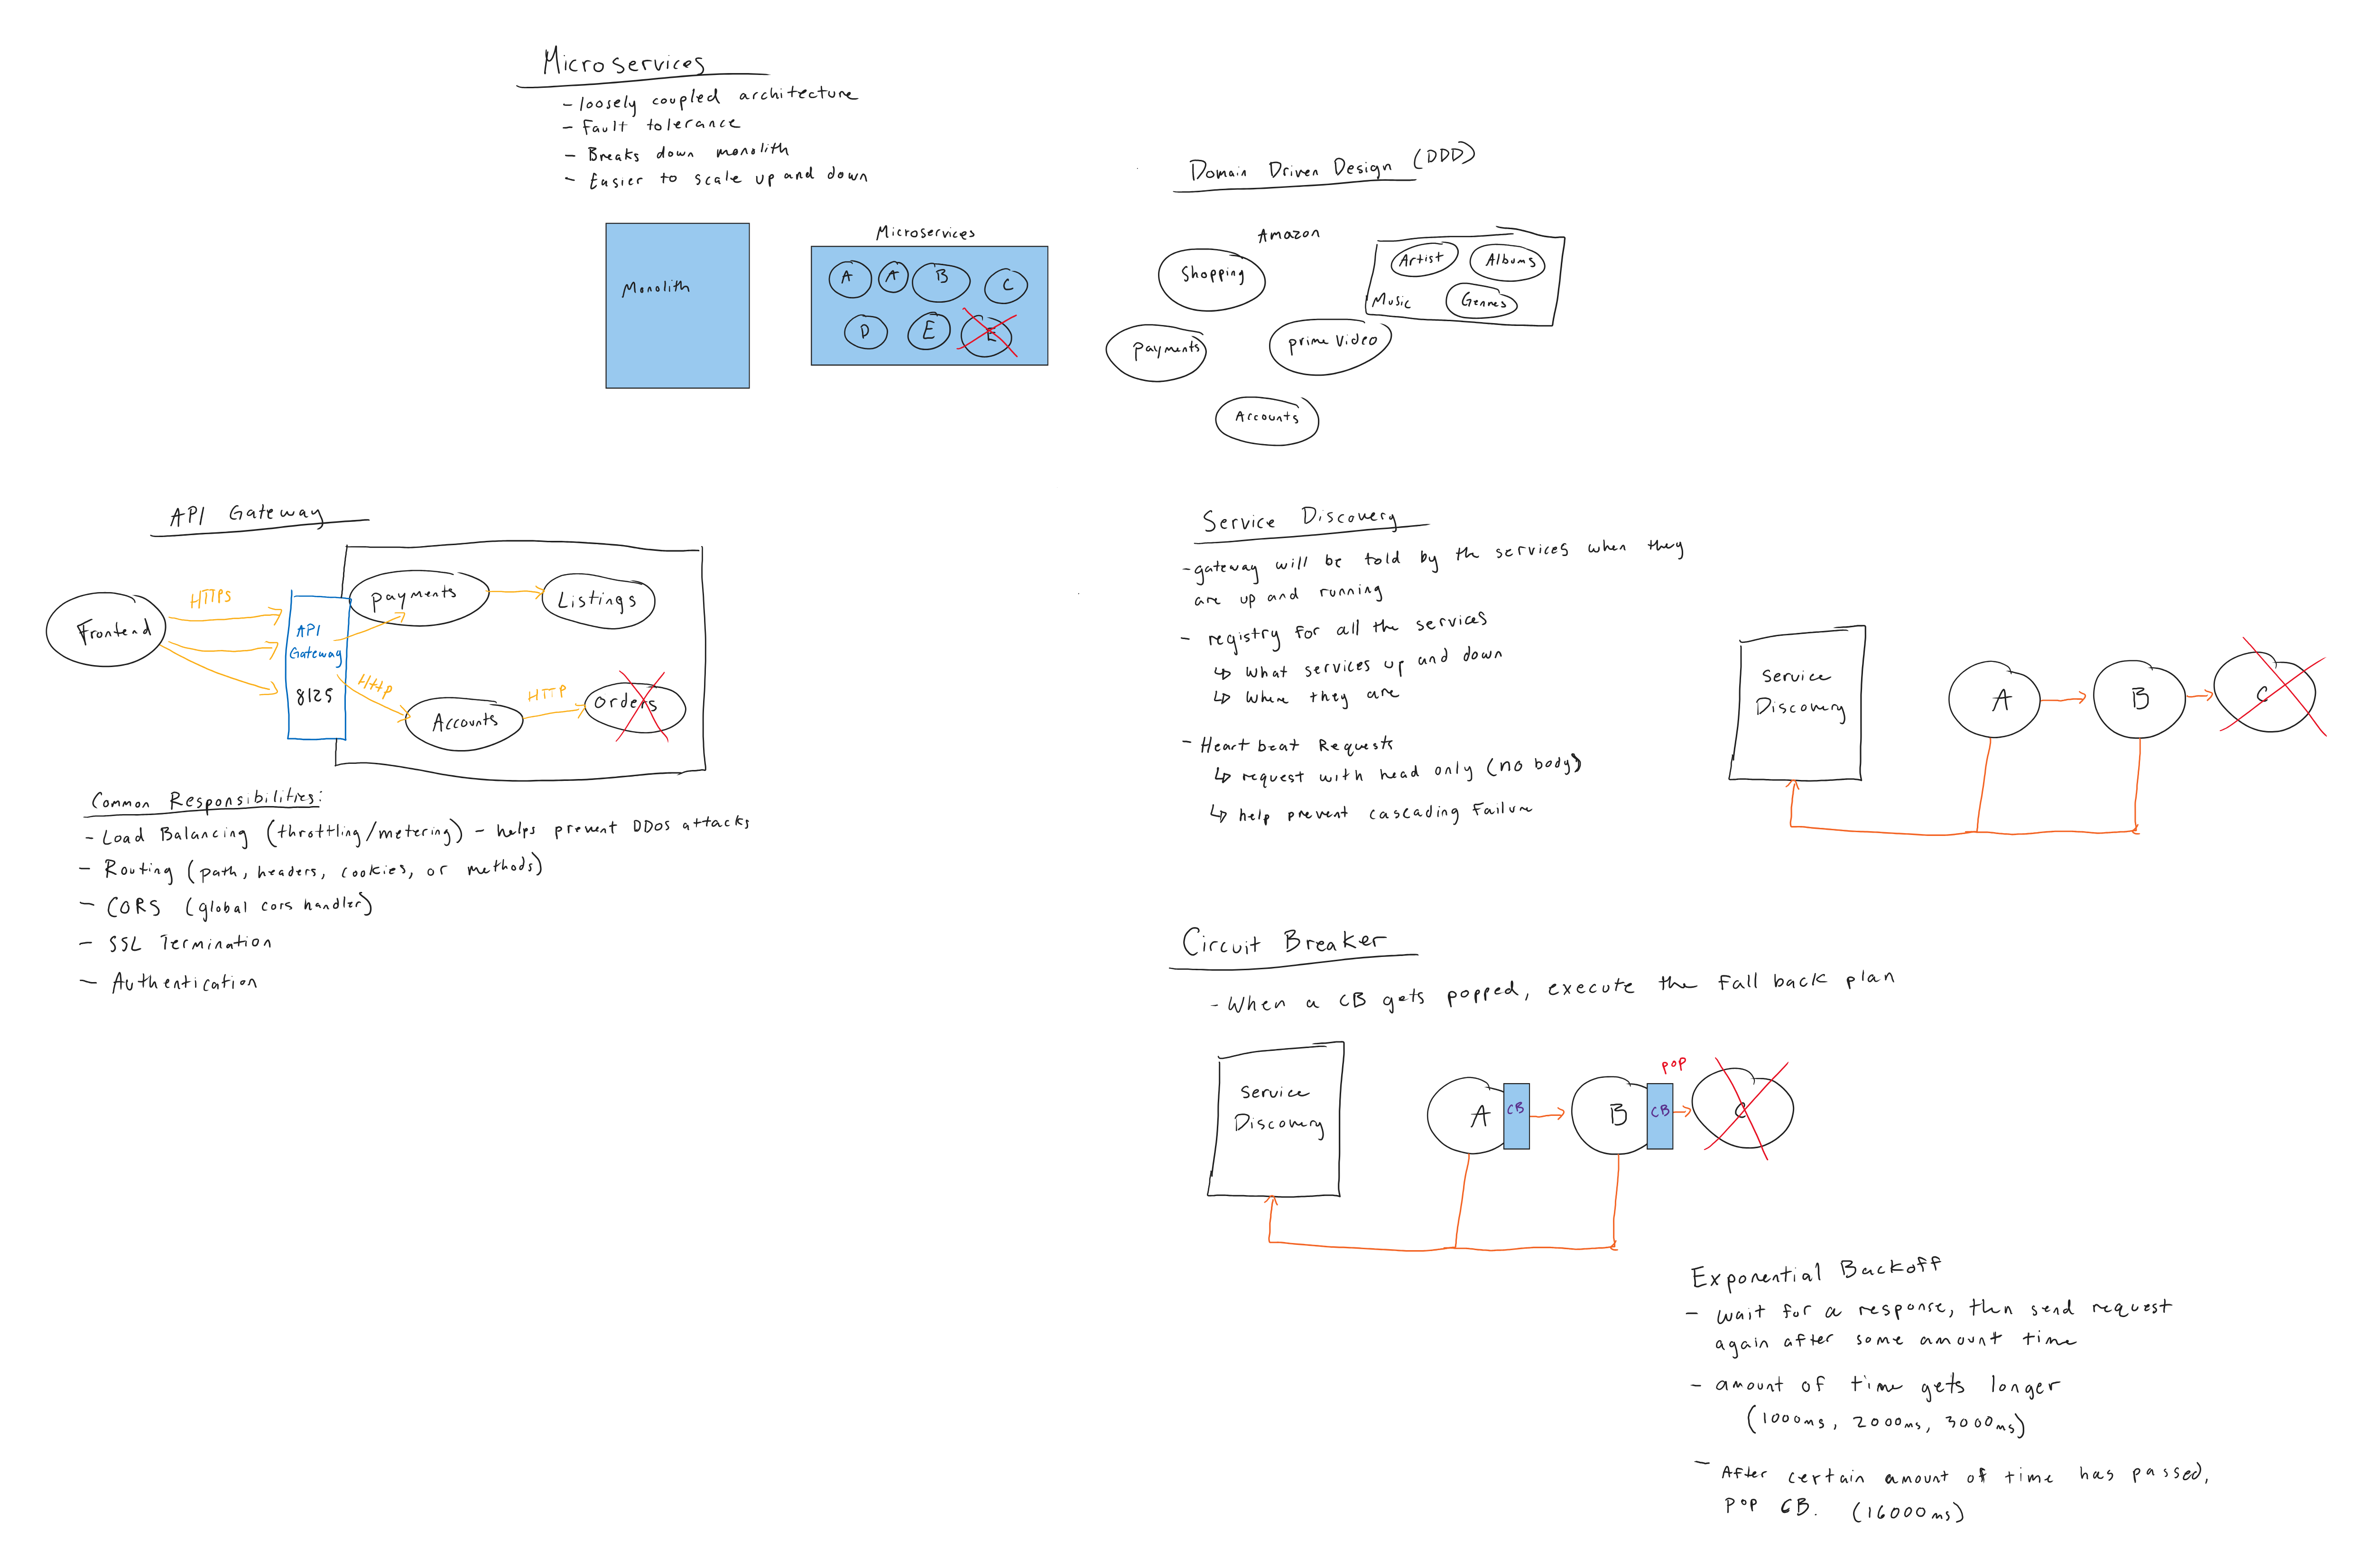 Microservices
- loosely coupled architecture
- Fault tolerance
- Breaks down monolith
- Easier to scale up and down
Monolith
Microservices
A A B C
D E E
Domain Driven Design (DDD)
Amazon
Shopping
Artist Albums
Music Genres
payments
prime Video
Accounts
API Gateway
Frontend
HTTPS
API
Gateway
8125
payments
Listings
HTTP
Accounts
HTTP
Orders
Common Responsibilities:
- Load Balancing (throttling/metering) - helps prevent DDos attacks
- Routing (path, headers, cookies, or methods)
- CORS (global cors handler)
- SSL Termination
- Authentication
Service Discovery
- gateway will be told by the services when they
are up and running
- registry for all the services
↳ What services up and down
↳ Where they are
- Heart beat Requests
↳ request with head only (no body)
↳ help prevent cascading Failure
Service
Discovery
A B C
Circuit Breaker
- When a CB gets popped, execute the Fall back plan
Service
Discovery
A CB B CB C
POP
Exponential Backoff
- wait for a response, then send request
again after some amount time
- amount of time gets longer
(1000ms, 2000ms, 3000ms)
- After certain amount of time has passed,
POP CB. (16000ms)